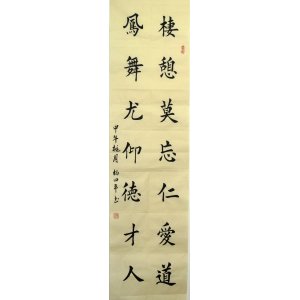 棲憩莫忘仁愛道
鳳舞尤仰德才人
甲午